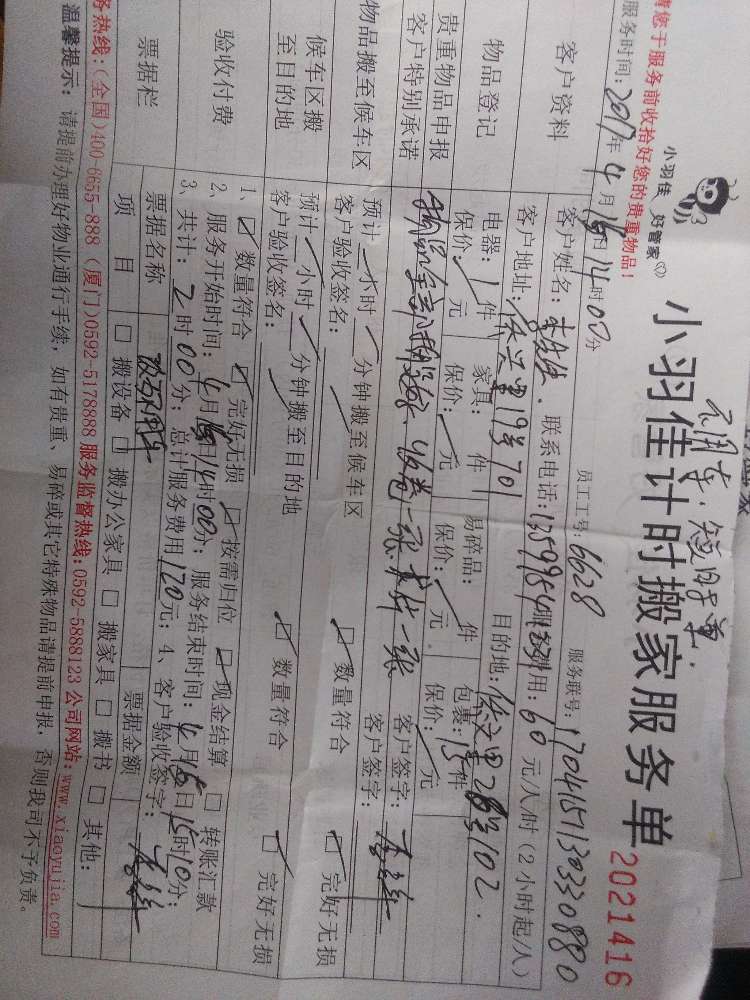 请您于服务前收拾好您的贵重物品!
小羽佳 好管家
小羽佳计时搬家服务单
2021416
服务时间: 2017年4月15日14时00分
员工工号: 6628
服务联号: 170415713033088
客户资料
客户姓名:
联系电话:
费用: 60 元/小时 (2小时起/人)
客户地址:
里19号701
目的地:
里28号102.
物品登记
电器: 1件
家具: 件
易碎品: 件
包裹: 15件
保价: 元
保价: 元
保价: 元
保价: 元
贵重物品申报
客户特别承诺
一张
一张
客户签字:
物品搬至候车区
预计 小时 分钟搬至候车区
客户验收签名:
数量符合
完好无损
候车区搬
至目的地
预计 小时 分钟搬至目的地
客户验收签名:
数量符合
完好无损
验收付费
1、 数量符合 完好无损 按需归位 现金结算 转账汇款
2、服务开始时间: 4月15日14时00分; 服务结束时间: 4月15日15时10分;
3、共计: 2时00分; 总计服务费用120元; 4、客户验收签字:
票据栏
票据名称
票据金额
项 目
搬设备 搬办公家具 搬家具 搬书 其他:
服务热线:(全国)400-6655-888 (厦门)0592-5178888 服务监督热线:0592-5888123 公司网站:www.xiaoyujia.com
温馨提示: 请提前办理好物业通行手续, 如有贵重、易碎或其它特殊物品请提前申报, 否则我司不予负责。